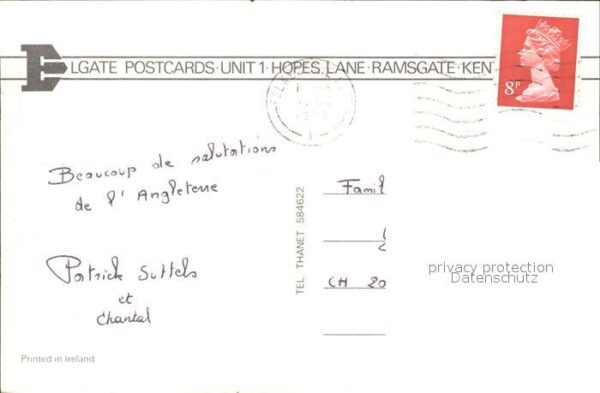 ELGATE POSTCARDS · UNIT 1 · HOPES LANE · RAMSGATE · KENT
8P
Beaucoup de salutations
de l' Angleterre
Patrick Suttels
et
Chantal
TEL. THANET 584622
Famil
CH 20
privacy protection
Datenschutz
Printed in Ireland